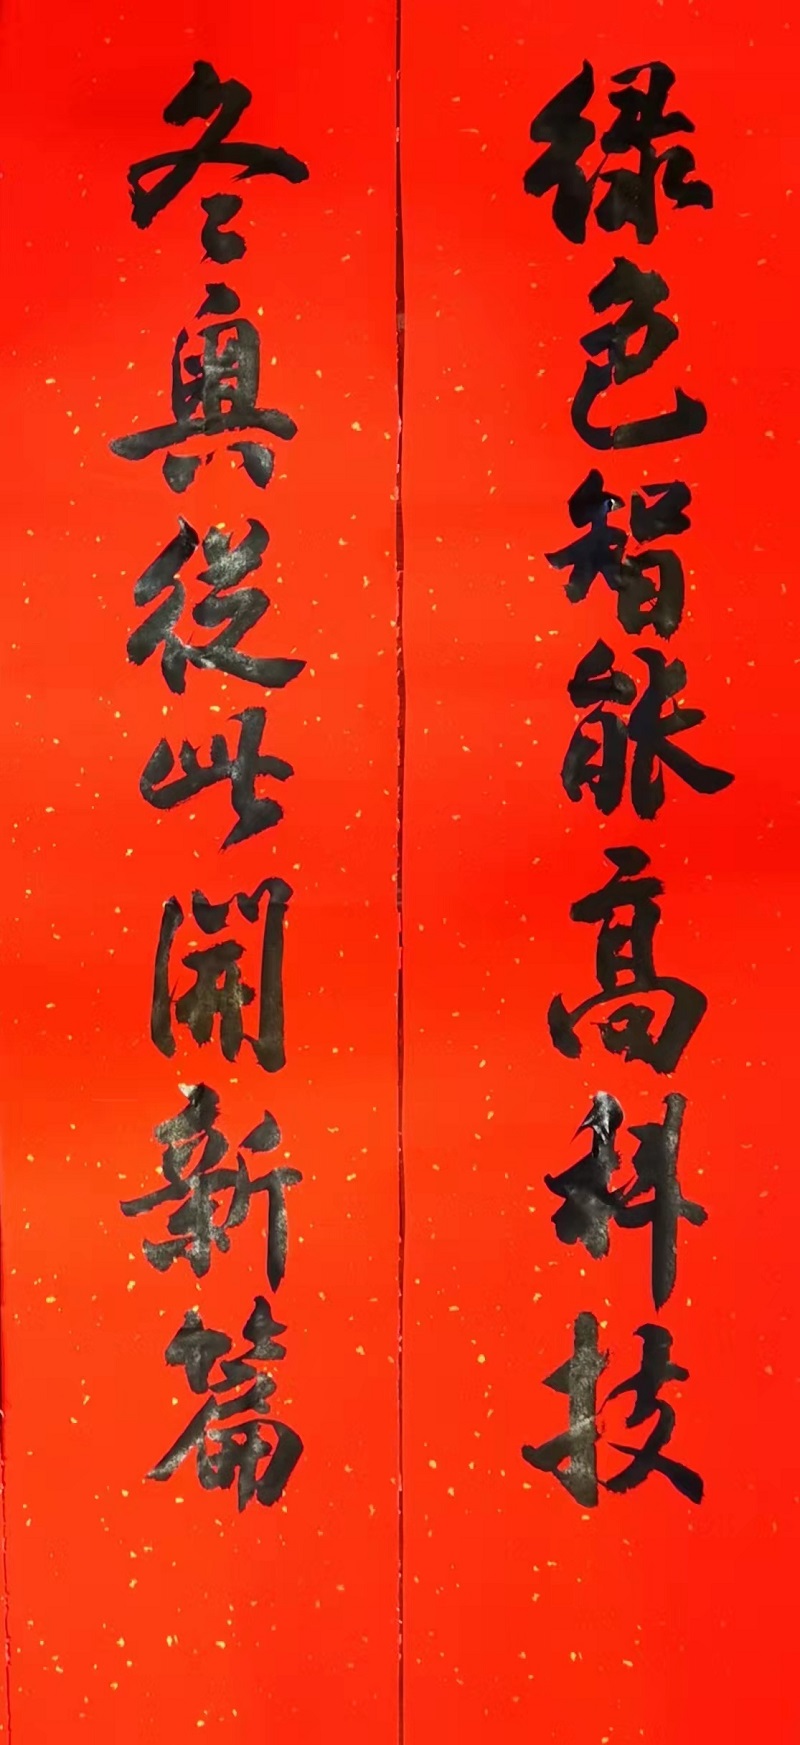 绿色智能高科技
冬奥從此開新篇